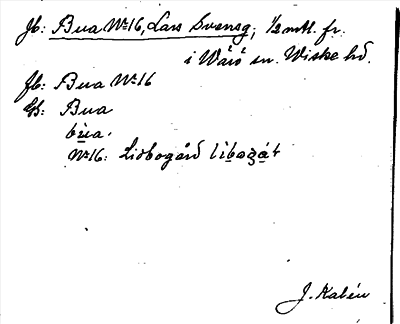 Jb: Bua № 16, Lars Svensg, 1/2 mtl. fr.
i Värö sn. Wiske hd.
Jb: Bua № 16
Bua
bu̱a.
№ 16: Lidbogård
J. Kalén